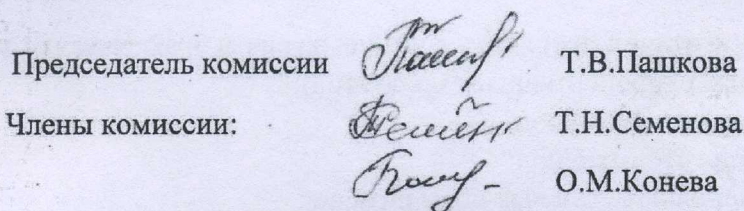 Председатель комиссии Т.В.Пашкова
Члены комиссии: Т.Н.Семенова
О.М.Конева